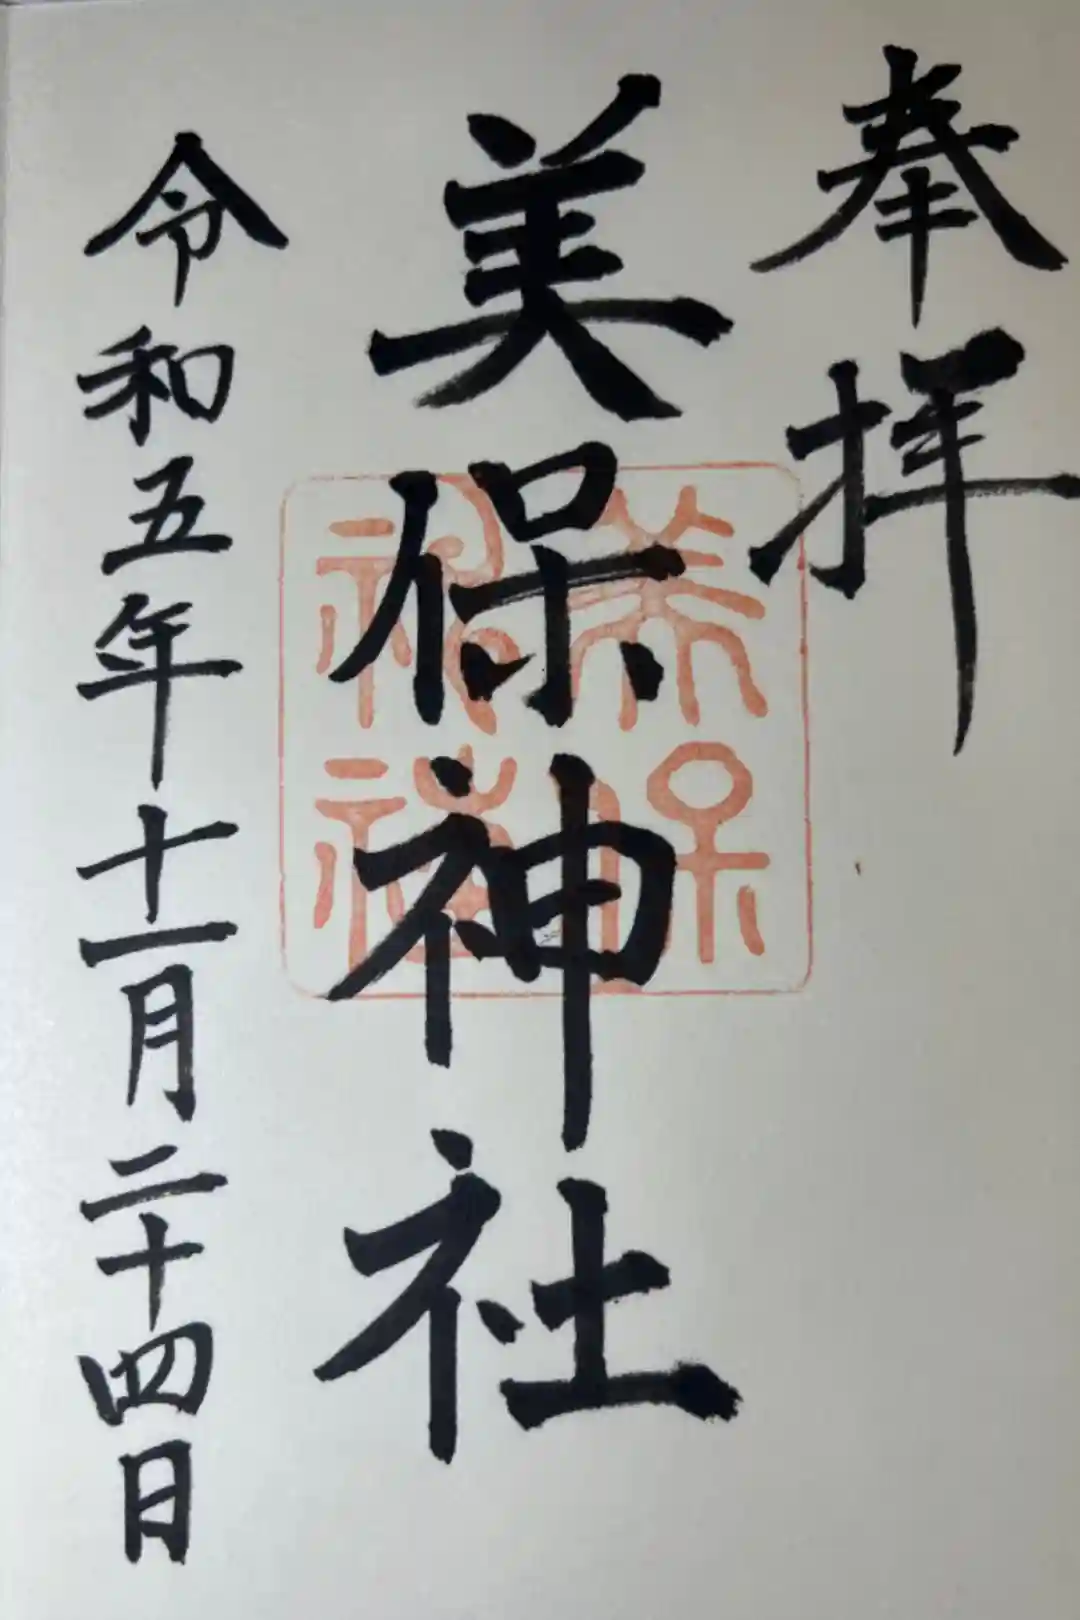 奉拝
美保神社
美保
神社
令和五年十一月二十四日